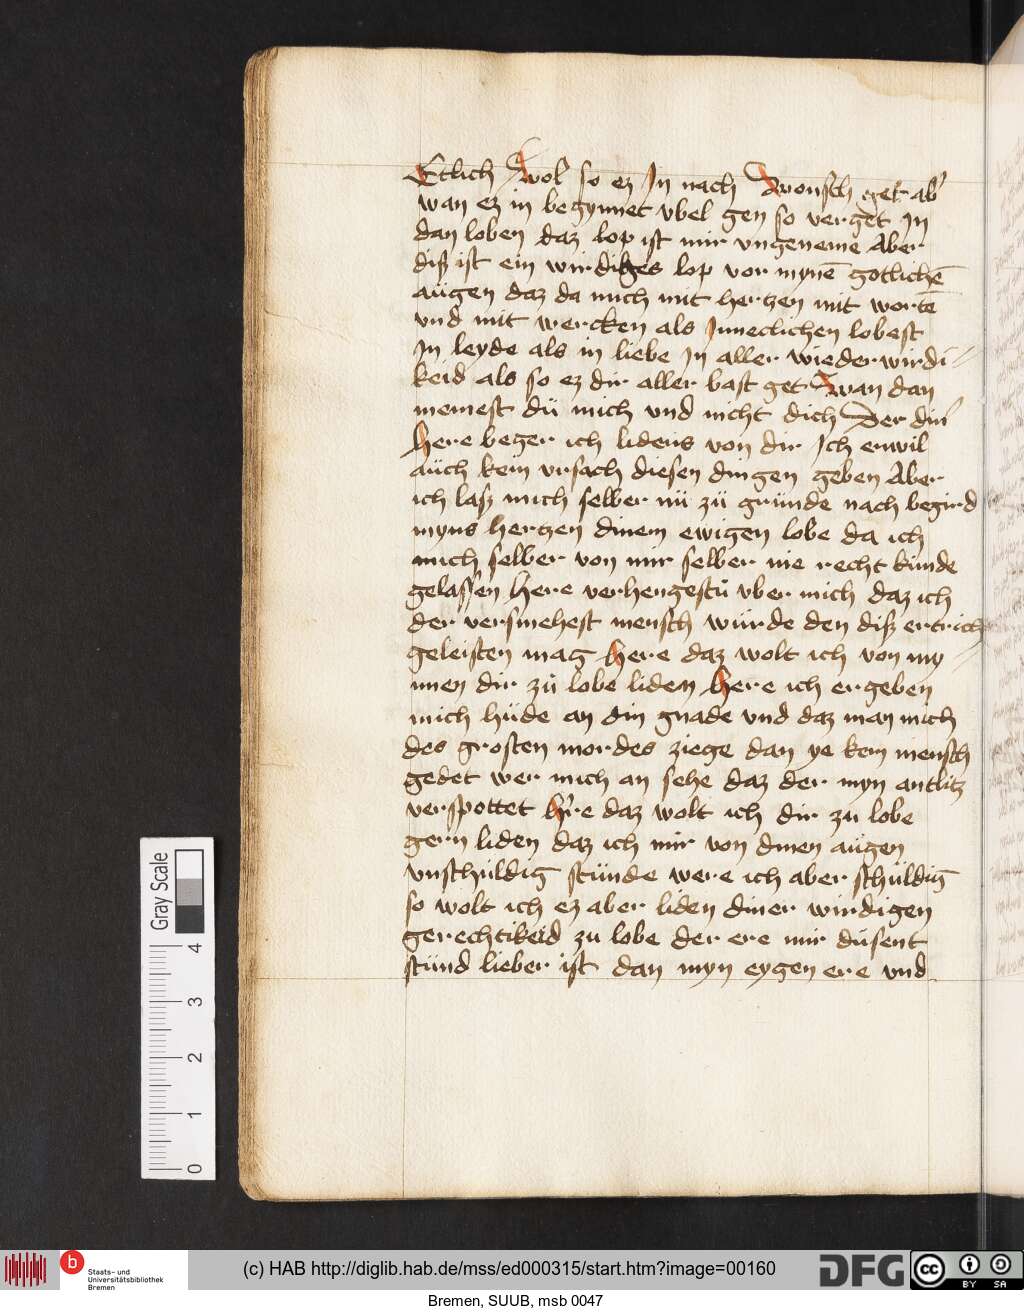 Etlich Wol so ez In nach Wonsch get ab'
wan ez in begynnet vbel gen so verget In
dan loben daz lop ist mir vngeneme Aber
disz ist ein wirdiges lop vor mynē gotlichē
augen daz da mich mit hertzen mit wortē
vnd mit wercken als Inneclichen lobest
In leyde als in liebe In aller wiederwirdi-
keid als so ez dir aller bast get Wan dan
meinest dü mich vnd nicht dich Der din'
here beger ich lidens von dir Ich enwil
auch kein vrsach diesen dingen geben Aber
ich lasz mich selber nü zü gründe nach begird
myns hertzen dinem ewigen lobe da ich
mich selber von mir selber nie recht künde
gelassen here verhengestü vber mich daz ich
der versmehest mensch würde den disz ertrich
geleisten mag here daz wolt ich von my-
nnen dir zü lobe liden here ich ergeben
mich hüde an din gnade vnd daz man mich
des grosten mordes ziege dan ye kein mensch
gedet wer mich an sehe daz der myn antlitz
verspottet h're daz wolt ich dir zu lobe
gern liden daz ich mir von dinen augen
vnschuldig stünde were ich aber schüldig
so wolt ich ez aber liden diner wirdigen
gerechtikeid zu lobe der ere mir düsent
stünd lieber ist dan myn eygen ere vnd
Gray Scale
4
3
2
1
0
b
Staats- und
Universitätsbibliothek
Bremen
(c) HAB http://diglib.hab.de/mss/ed000315/start.htm?image=00160
DFG
cc
BY
SA
Bremen, SUUB, msb 0047